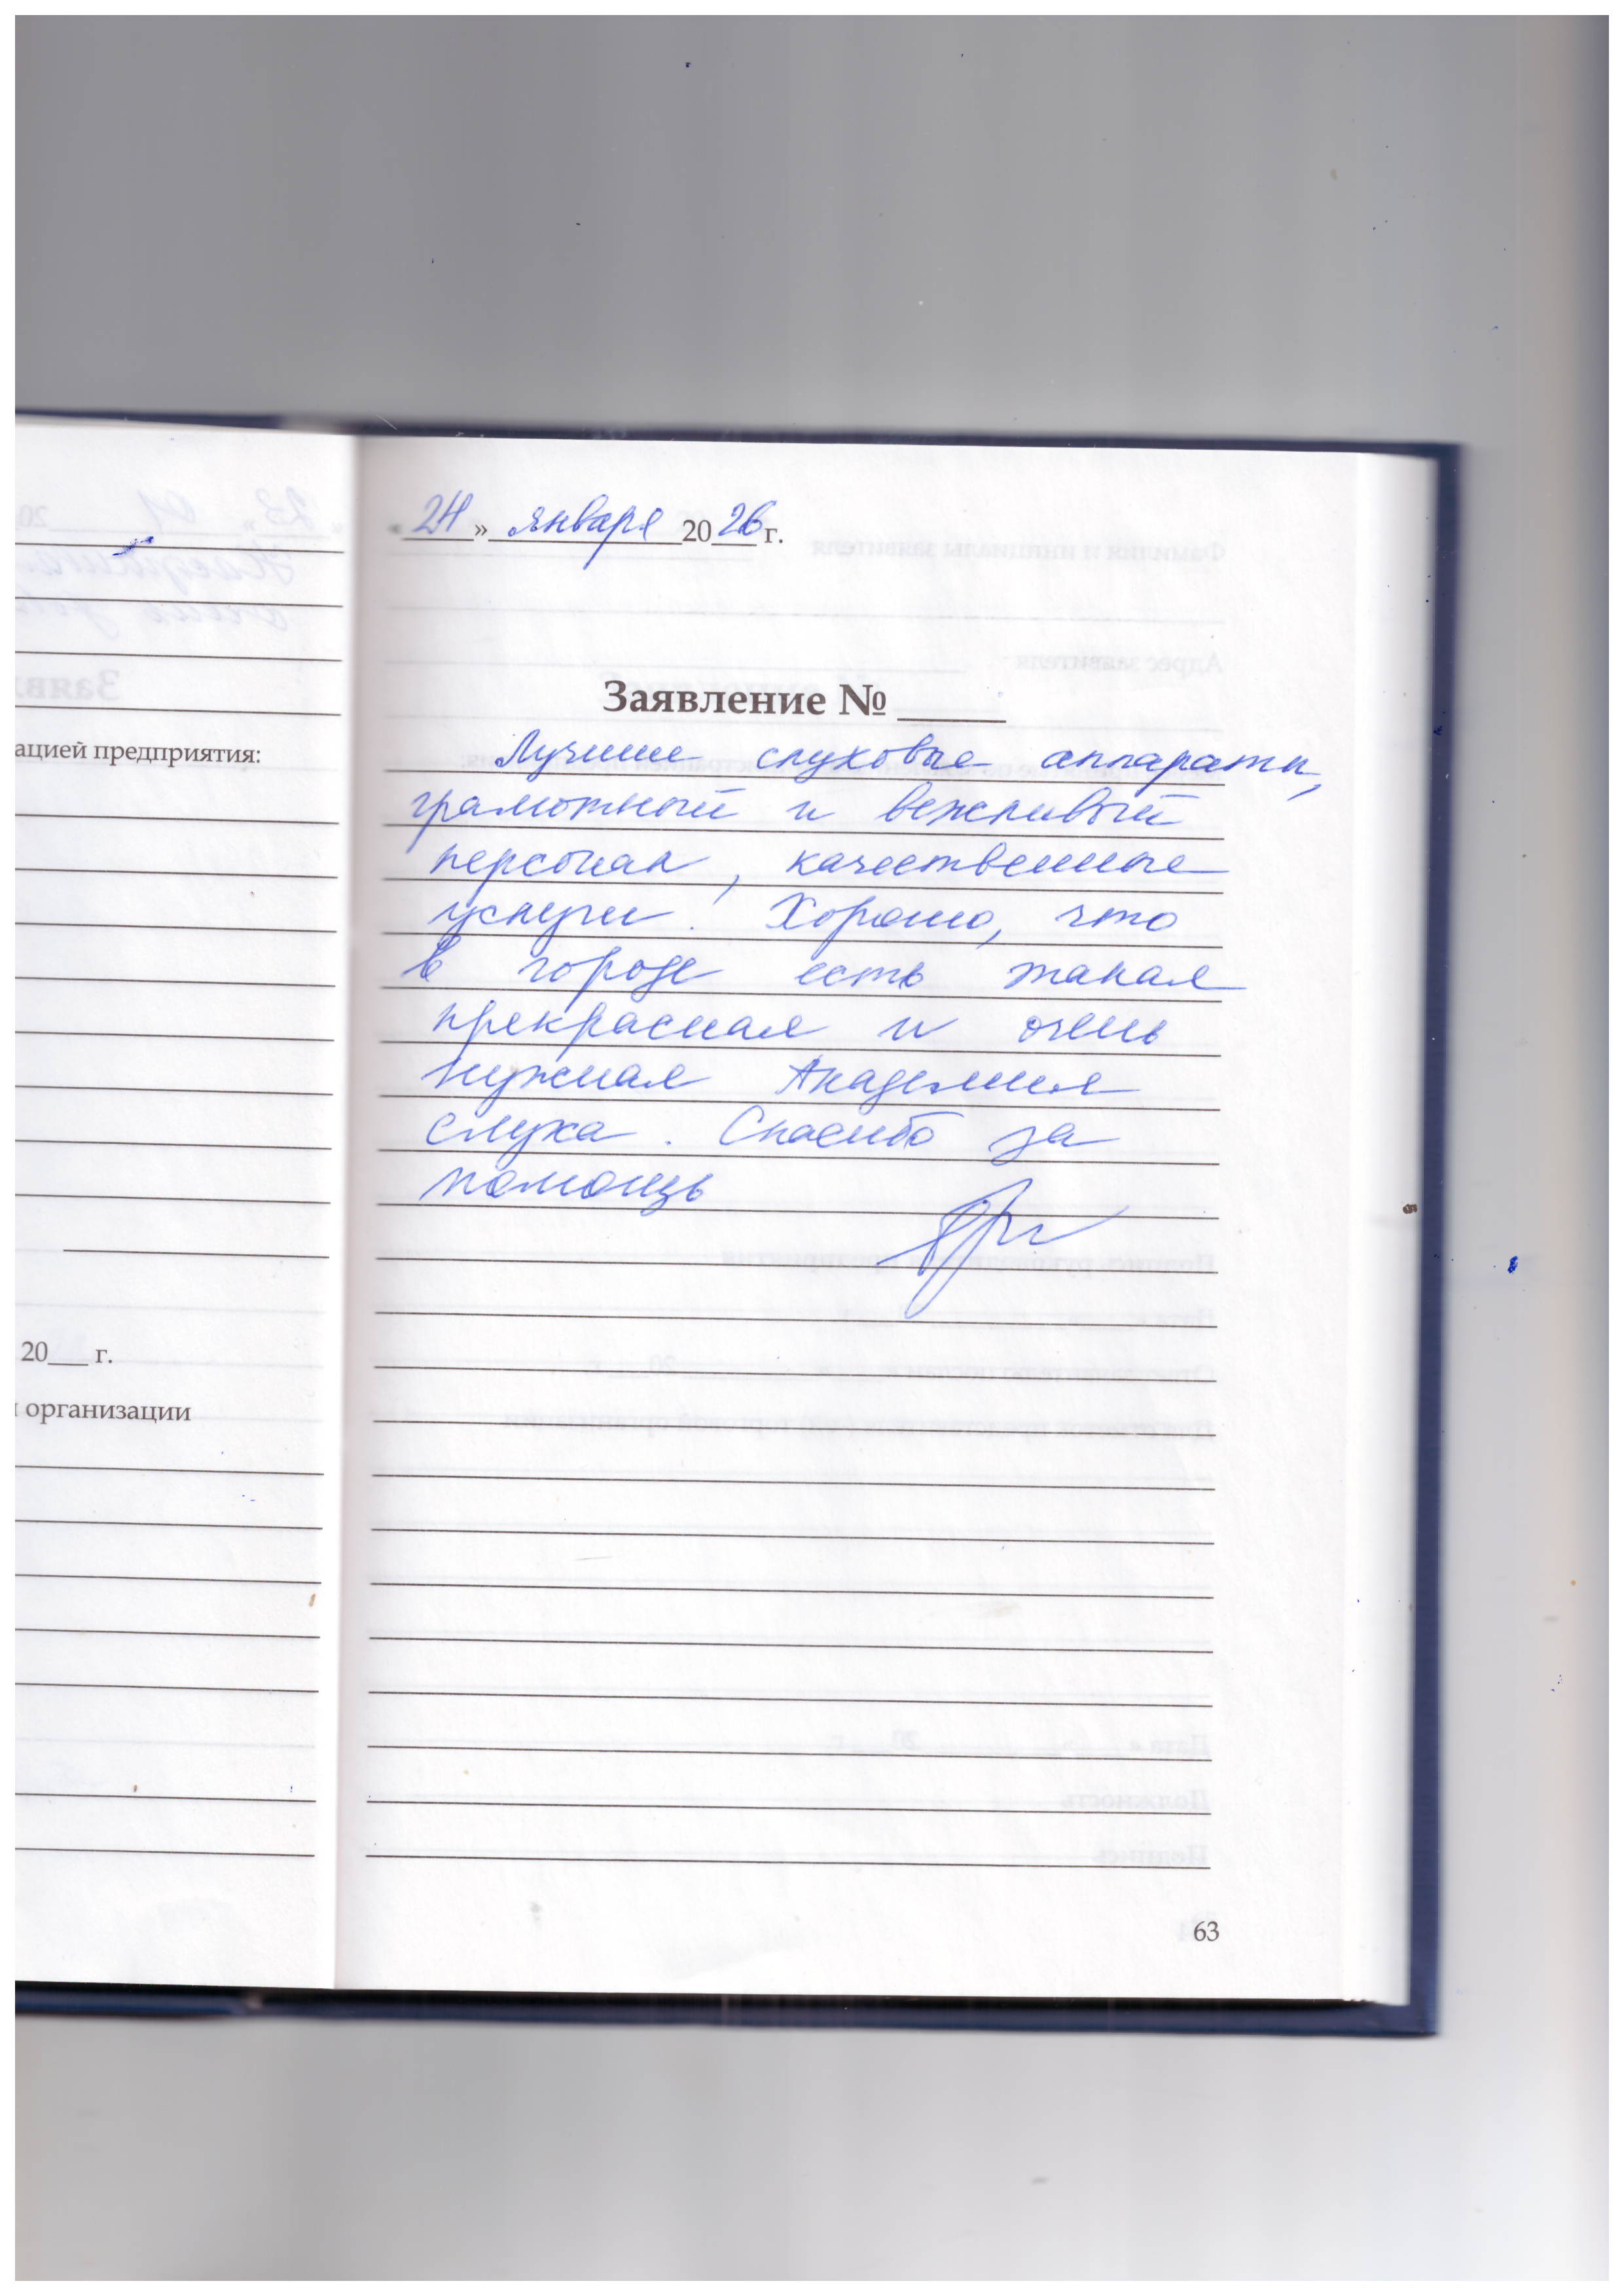 « 24 » января 2026 г.
Заявление № _____
Лучшие слуховые аппараты,
грамотный и вежливый
персонал, качественные
услуги. Хорошо, что
в городе есть такая
прекрасная и очень
нужная Академия
слуха. Спасибо за
помощь
63
ацией предприятия:
20___ г.
организации